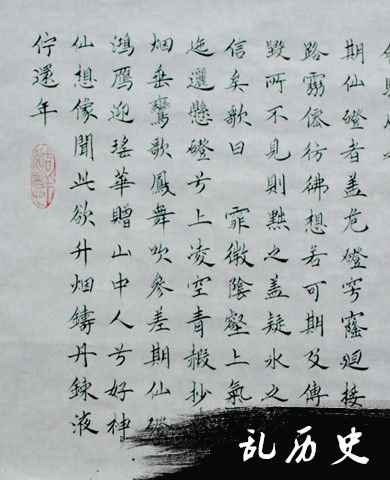 期仙磴者盖危磴穹窿廻接
路霛僊彷彿想若可期及傳
毀所不見則黜之盖疑氷之
信矣歌曰 霏微陰壑上氣
迤邐懸磴兮上凌空青赮抄
烟垂鸞歌鳳舞吹參差期仙磴
鴻鴈迎瑤華贈山中人兮好神
仙想像聞此欲升烟鑄丹鍊液
佇還年
乱历史